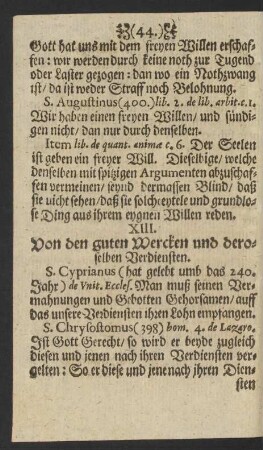 (44.)
Gott hat uns mit dem freyen Willen erschaf-
fen: wir werden durch keine noth zur Tugend
oder Laster gezogen: dan wo ein Nothzwang
ist/ da ist weder Straff noch Belohnung.
S. Augustinus (400.) lib. 2. de lib. arbit. c. 1.
Wir haben einen freyen Willen/ und sündi-
gen nicht/ dan nur durch denselben.
Item lib. de quant. animæ c. 6. Der Seelen
ist geben ein freyer Will. Dieselbige/ welche
denselben mit spitzigen Argumenten abzuschaf-
fen vermeinen/ seynd dermassen Blind/ daß
sie nicht sehen/ daß sie solch eytele und grundlo-
se Ding aus ihrem eygnen Willen reden.
XIII.
Von den guten Wercken und dero-
selben Verdiensten.
S. Cyprianus (hat gelebt umb das 240.
Jahr) de Vnit. Eccles. Man muß seinen Ver-
mahnungen und Gebotten Gehorsamen/ auff
das unsere Verdiensten ihren Lohn empfangen.
S. Chrysostomus (398) hom. 4. de Lazaro.
Ist Gott Gerecht/ so wird er beyde zugleich
diesen und jenen nach ihren Verdiensten ver-
gelten: So er diese und jene nach ihren Dien-
sten